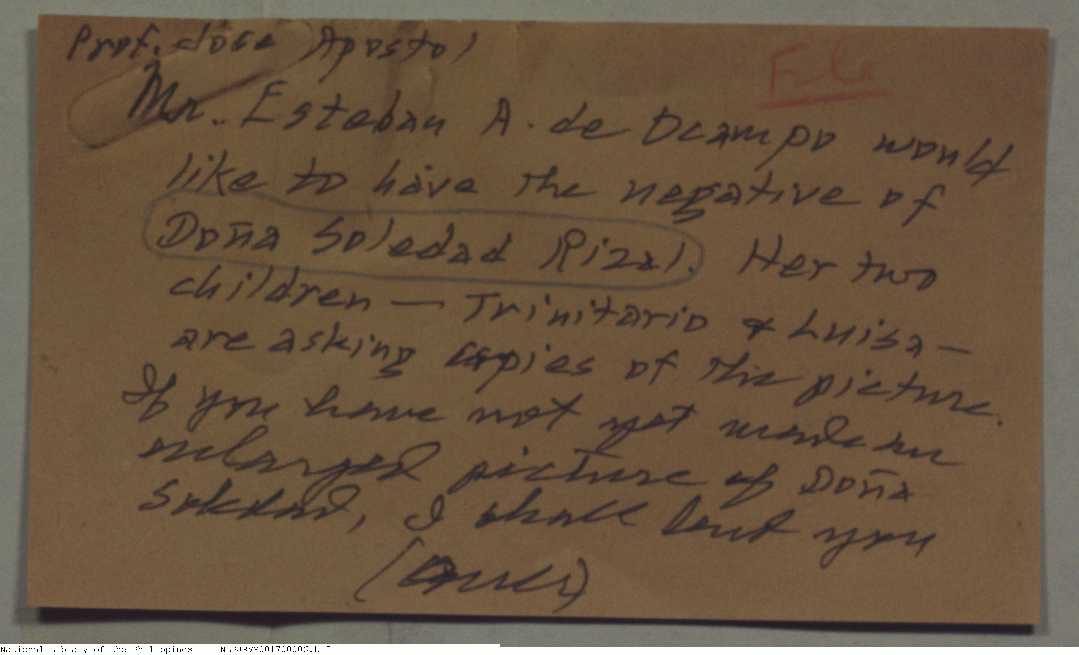 Prof. Jose Apostol
File
Mr. Esteban A. de Ocampo would
like to have the negative of
Doña Soledad Rizal. Her two
children — Trinitario & Luisa —
are asking copies of the picture.
If you have not yet made an
enlarged picture of Doña
Soledad, I shall lend you
(over)
National Library of the Philippines